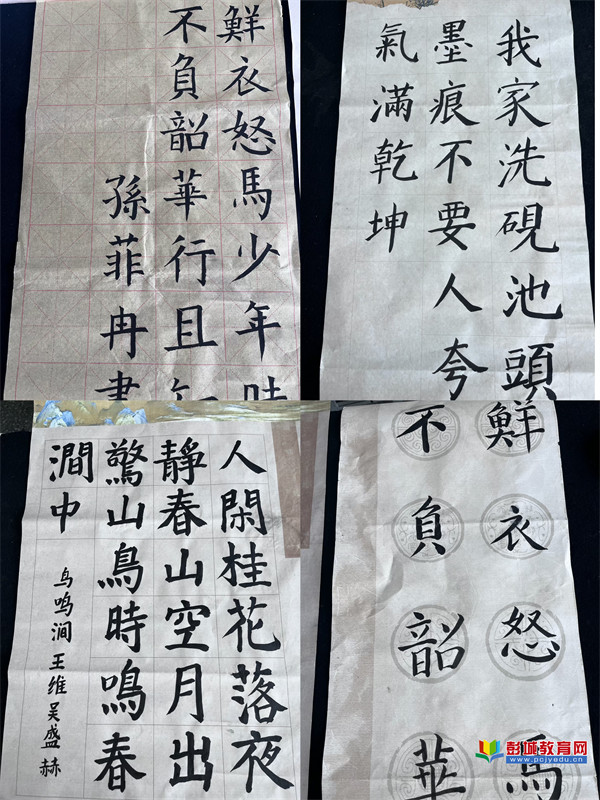 鮮衣怒馬少年
不負韶華行且
孫菲冉書
我家洗硯池頭
墨痕不要人夸
氣滿乾坤
人閑桂花落夜
靜春山空月出
驚山鳥時鳴春
澗中
鸟鸣涧 王维 吴盛赫
鮮衣怒馬
不負韶華
彭城教育网
www.pcjyedu.cn